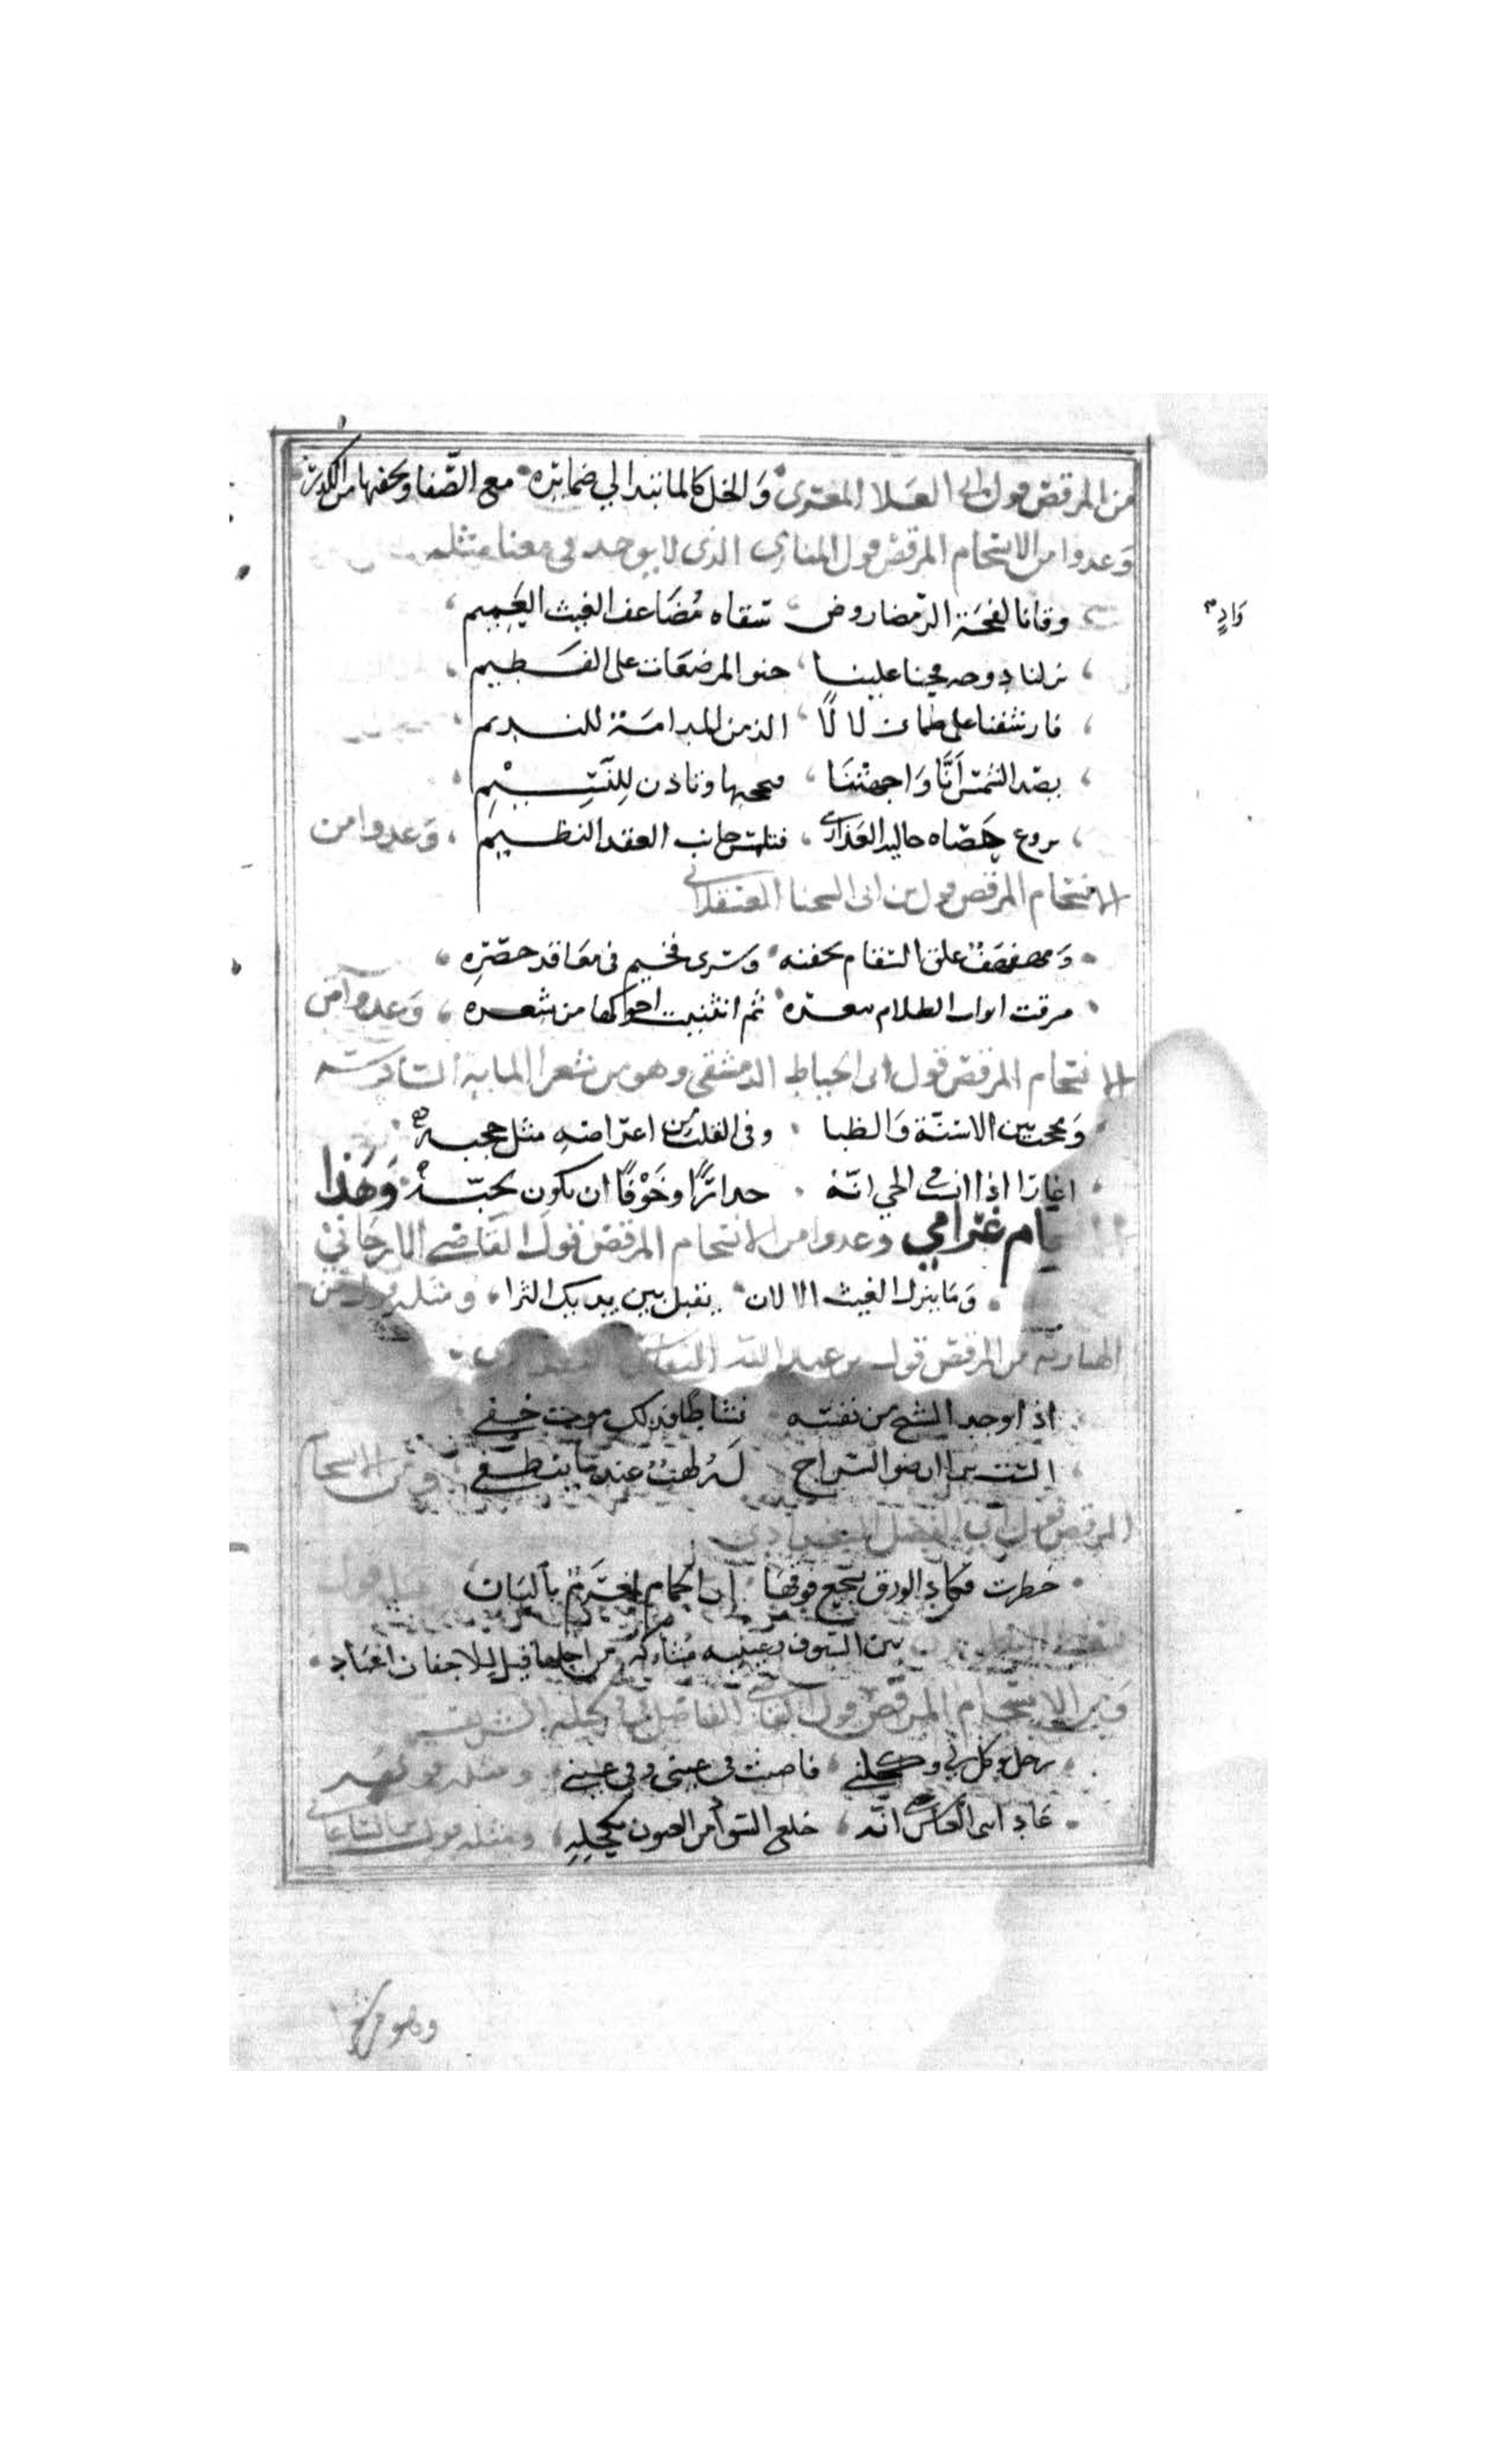 من المرقص قول ابي العلا المعري وَالخل كالما يبدا لي ضمايره مع الصّفا ويخفيها من الكدر
وَعدوا من الانسجام المرقص قول المنازي الذي لا يوجد في معناه مثله
وقانا لفحة الرمضا روض سقاه مُضَاعف الغيث العَمِيم
وَادٍ
نزلنا دوحه فحنا علينا حنو المرضعَات على الفَطيم
فارشفنا على ظماٍ زلالًا الذ من المدامَة للنديم
يصد الشمس أنَّا وَاجهتْنَا فيحجبها وياذن لِلنَّسِيْمِ
يروع حَصَاه حالية العَذارى فتلمس جانب العقد النظيم وَعدوا من
الانسجام المرقص قول من ابي
وَمهفهَف علق السقام بجفنه وسرى فخيم في معَاقد خصره
مزقت اثواب الظلام بثغره ثم انثنيت احوكها من شعره وَعدوا من
الانسجام المرقص قول ابن الخياط الدمشقي وهو من شعر الماية السادسة
وَمحتجب بين الاسنّة وَالظبا وفي القلب من اعراضه مثل حجبه
اغار اذا انست في الحي انّة حذارًا وخَوْفًا ان يكون لحبّه وَهَذا
غرامي وعدوا من الانسجام المرقص قول القاضي الارجاني
وَمَا ينزل الغيث الا لان يقبل بين يديك الثرا ومثله قول بن
الهبارية من المرقص قول بن عبد الله
اذا وجد الشيخ من نفسه نشاطًا فذلك موت خفي
الست ترى ان ضو السراج لَهُ لهبٌ عند مَا ينطفي ومن الانسجام
المرقص قول ابي الفضل البغدادي
خطرت فكاد الورق يسجع فوقهَا إن الحمام لمغرَم بالبَان
بين السيوف وعينيه مشاركة من اجلها قيل للاجفان اغمَاد
وَمن الانسجام المرقص قول القاضي الفاضل في
رجل توكل لي وكحلني فاصبت في عيني وفي عيني ومثله قولهم
عَادِ انّه خلع السواد من العيون بكحلِهِ ومثله قول بن الساعاتي